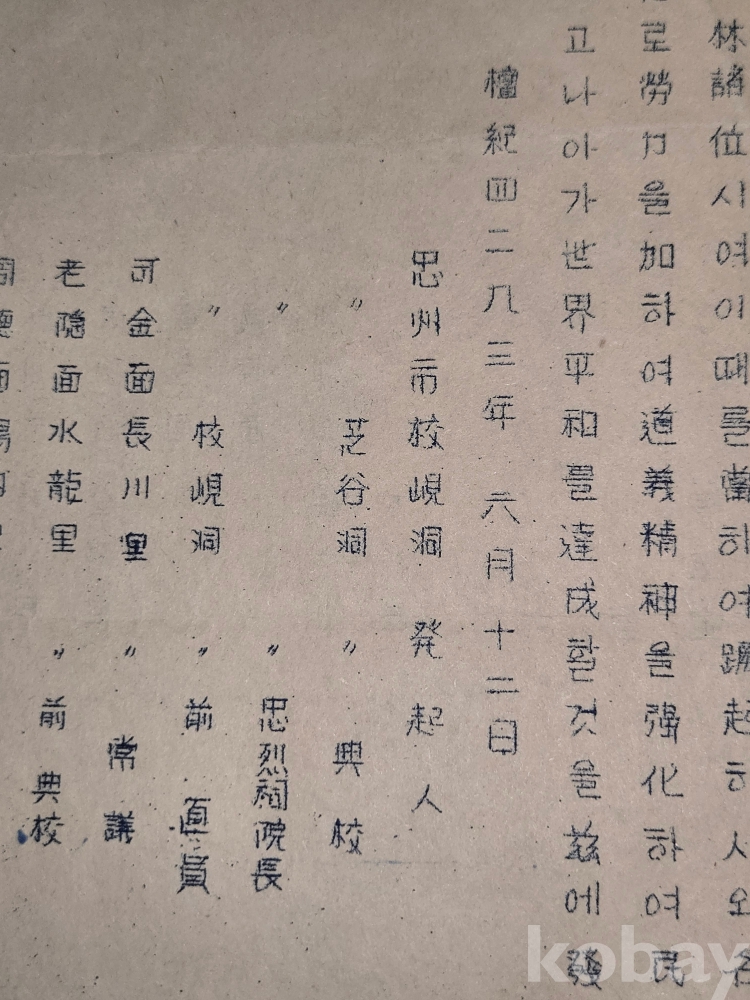 林諸位시여이때를當하여蹶起하시오
로勞力을加하여道義精神을强化하여民
고나아가世界平和를達成할것을玆에發
檀紀四二九三年 六月十二日
忠州市校峴洞 発起人
〃 芝谷洞 〃 典校
〃 〃 忠烈祠院長
〃 校峴洞 〃 前直員
可金面長川里 〃 常議
老隠面水龍里 〃 前典校
周德面
kobay